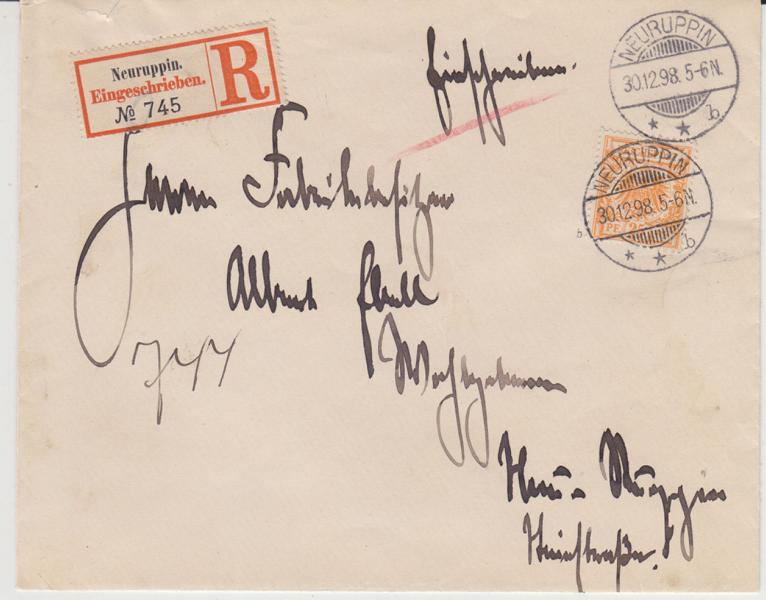 Neuruppin.
Eingeschrieben.
№ 745
R
Einschreiben.
NEURUPPIN
30.12.98. 5-6N.
b
NEURUPPIN
30.12.98. 5-6N.
b
PF 25
Herrn Fabrikbesitzer
Albert Ebell
Wohlgeboren
Neu-Ruppin